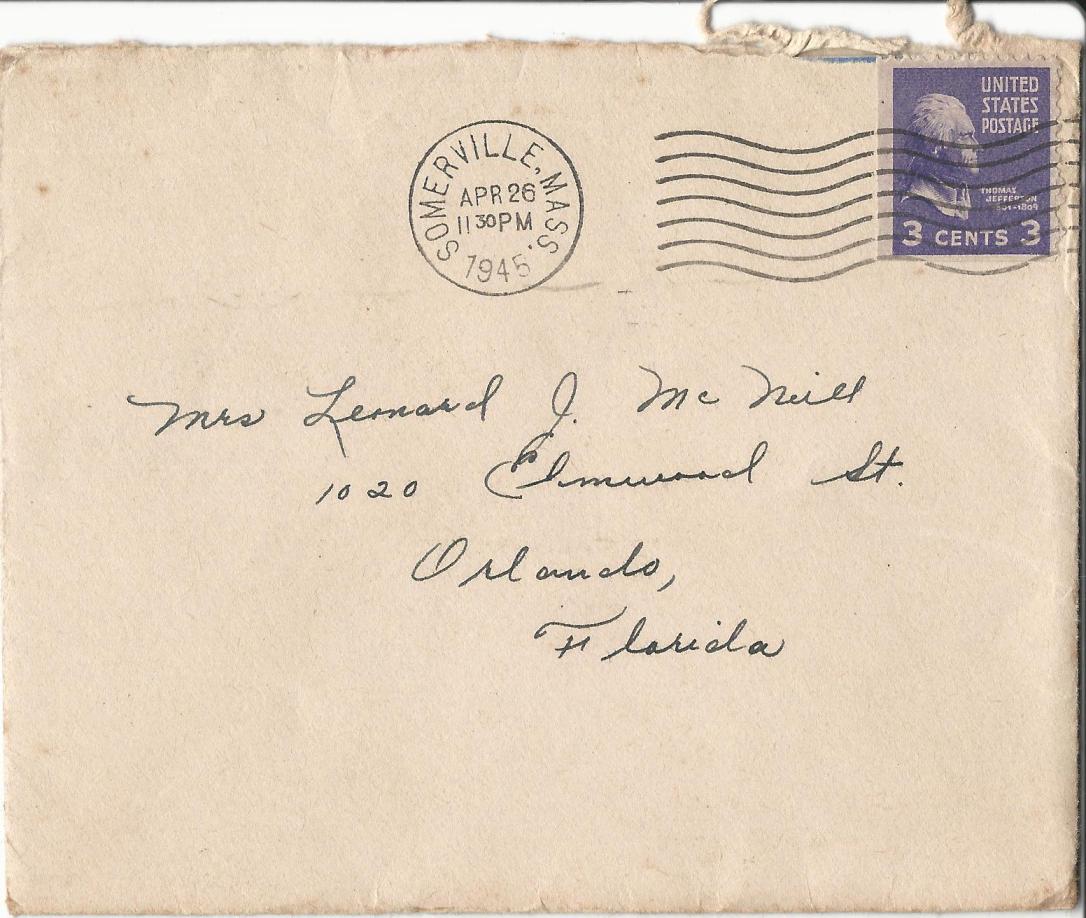 SOMERVILLE, MASS.
APR 26
11 30 PM
1945
UNITED
STATES
POSTAGE
THOMAS
JEFFERSON
1801-1809
3 CENTS 3
Mrs Leonard J. McNeill
1020 Elmwood St.
Orlando,
Florida